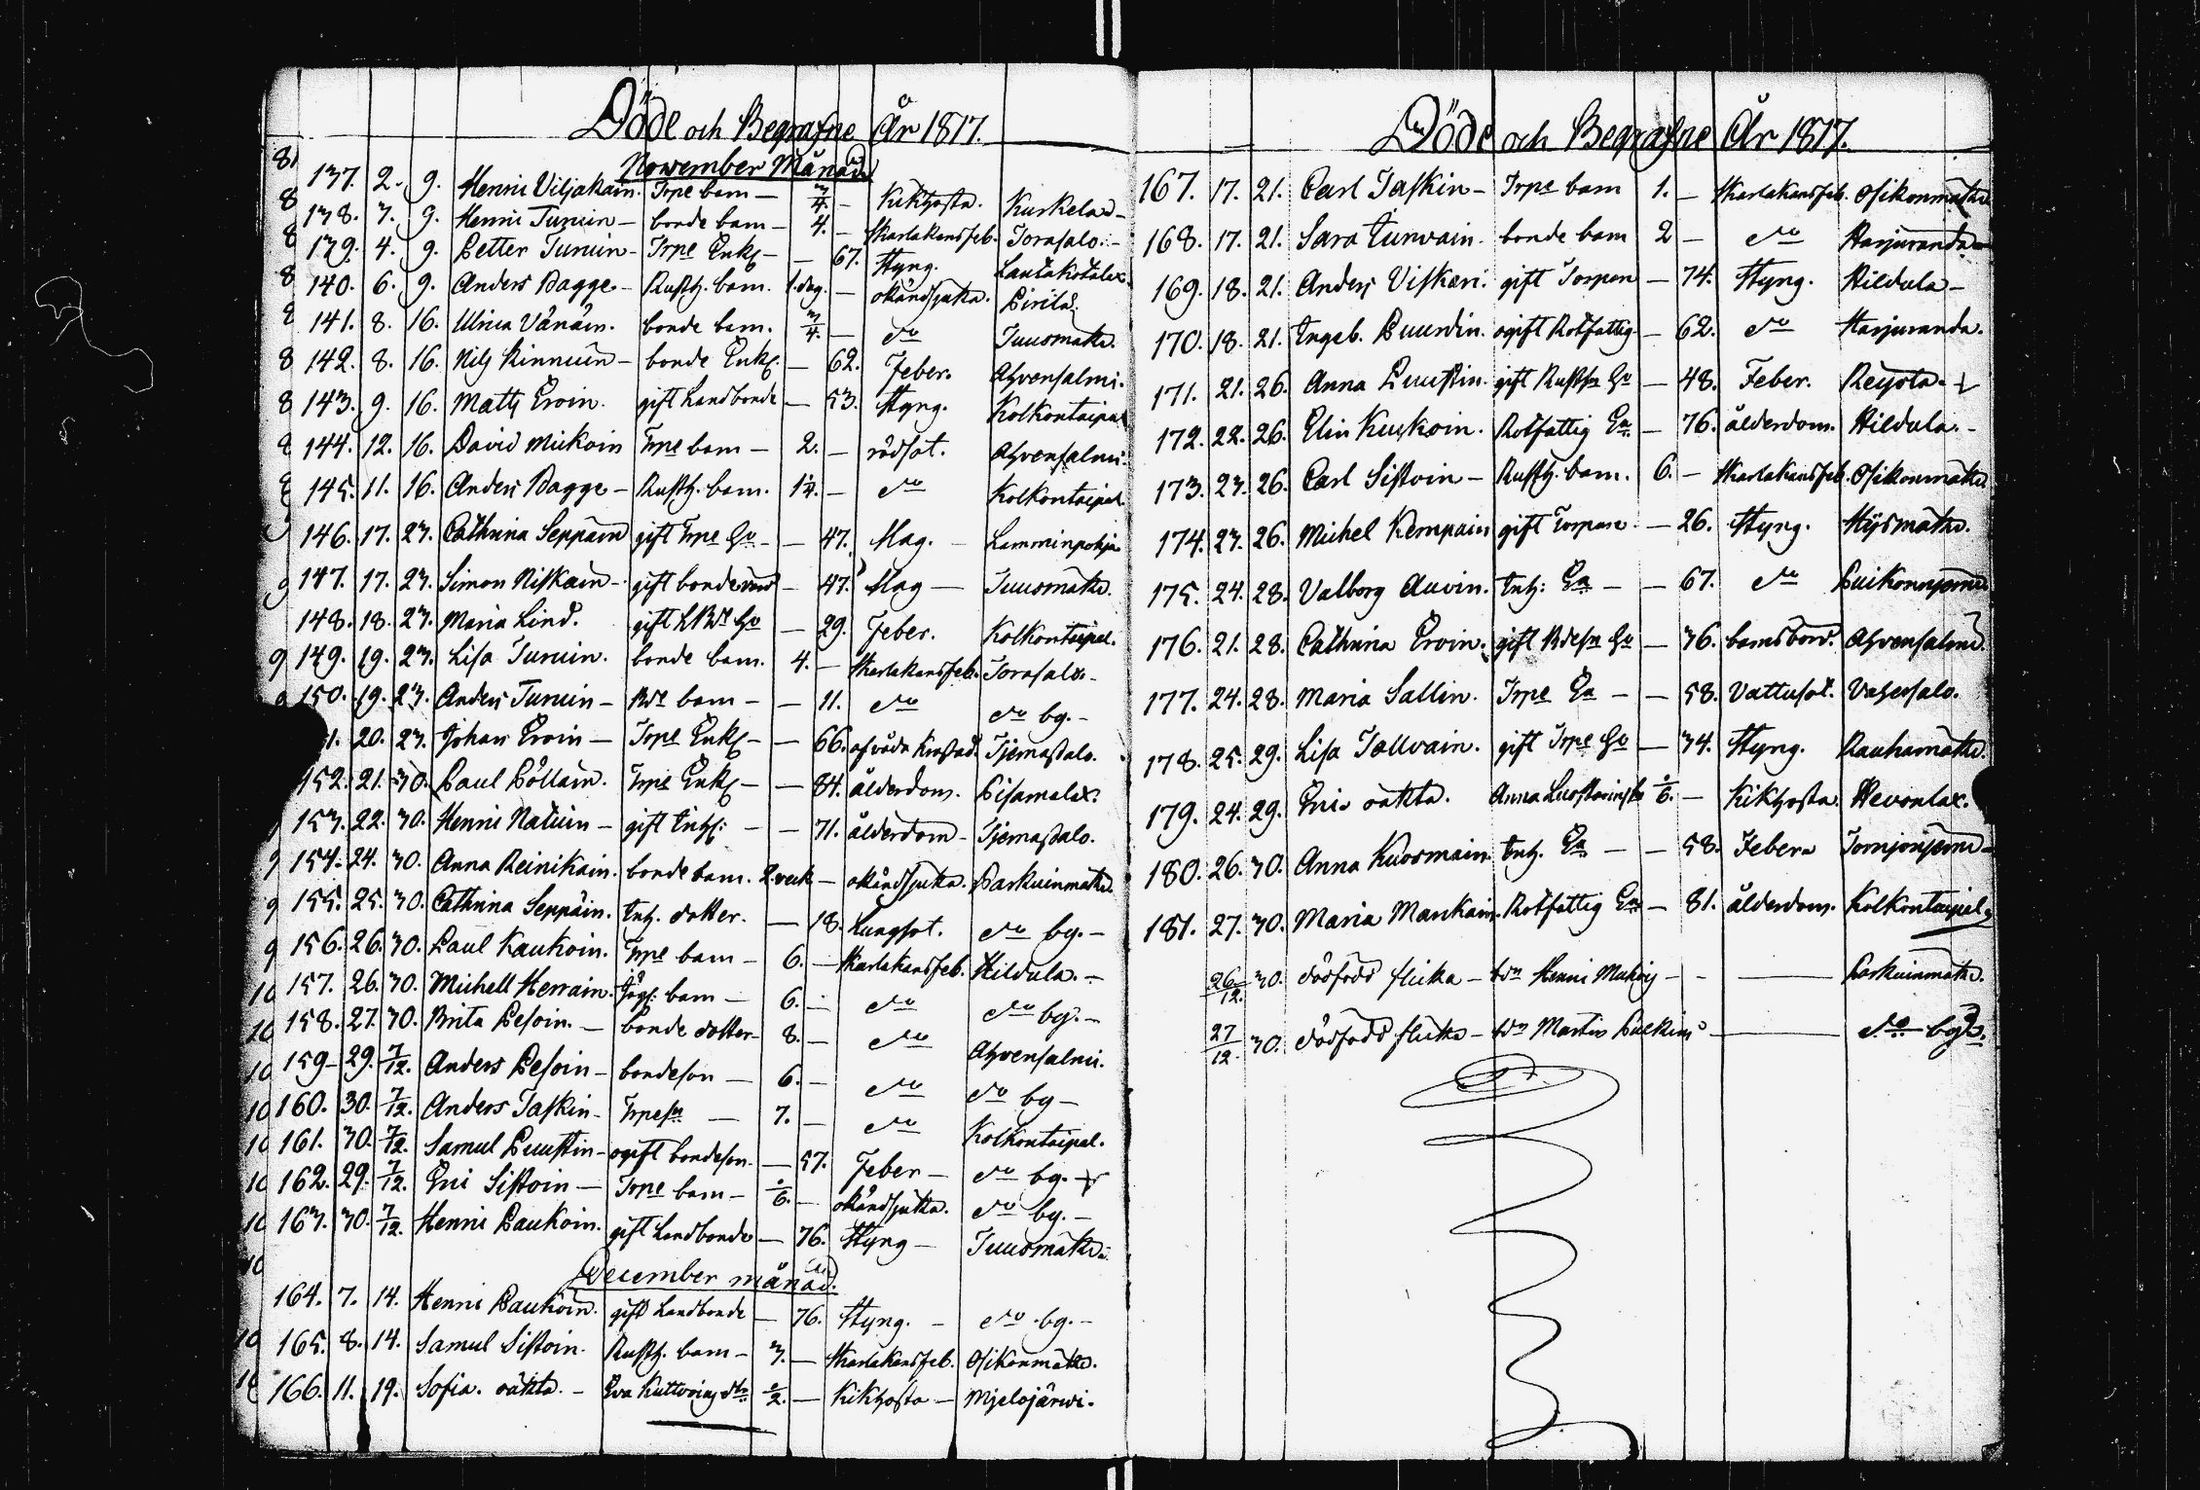 Döde och Begrafne År 1817.
November Månad
137. 2. 9. Henric Viljakain. Trpe barn — 3/4. — Kikhosta. Kurkela —
138. 3. 9. Henric Turuin — bonde barn — 4. — Skarlakansfeb. Torasalo. —
139. 4. 9. Petter Turuin — Trpe Enkl — — 67. Styng. Lautakotalax.
140. 6. 9. Anders Bagge — Rusth. barn. 1. dag. — okänd sjukd. Pirilä.
141. 8. 16. Ulrica Vänäin. bonde barn. 3/4. — do Juuomäki.
142. 8. 16. Nils Kinnuin — bonde Enkl. — 62. Feber. Ahvensalmi.
143. 9. 16. Matts Eroin. gift Landbonde — 53. Styng. Kolkontaipal
144. 12. 16. David Mickoin Trpe barn — 2. — rödsot. Ahvensalmi.
145. 11. 16. Anders Bagge — Rusth. barn. 1 1/4. — do Kolkontaipal
146. 17. 23. Cathrina Seppäin gift Trpe Hu — — 47. Mag. — Lamminpohja
147. 17. 23. Simon Niskain — gift bonde — 47. Mag — Juuomäki.
148. 18. 23. Maria Lind. gift Hu — 29. Feber. Kolkontaipal.
149. 19. 23. Lisa Turuin. bonde barn. 4. — Skarlakansfeb. Torasalo. —
150. 19. 23. Anders Turuin — Bde barn — — 11. do do by. —
1. 20. 23. Johan Eroin — Trpe Enkl — — 66. Tjemassalo.
152. 21. 30. Paul Pöllain. Trpe Enkl — — 84. ålderdom. Pisamalax.
153. 22. 30. Henric Natuin — gift Inhs: — — 71. ålderdom — Tjemassalo.
154. 24. 30. Anna Reinikain. bonde barn. 2. veck — okänd sjukd. Paskuinmäki.
155. 25. 30. Cathrina Seppäin. Inh. dotter. — 18. Lungsot. do by. —
156. 26. 30. Paul Kaukoin. Trpe barn — 6. — Skarlakansfeb. Hildula. —
157. 26. 30. Michell Herrain. barn — 6. — do do by. —
158. 27. 30. Brita Pesoin. — bonde dotter — 8. — do Ahvensalmi.
159. 29. 7/12. Anders Pesoin — bondeson — 6. — do do by —
160. 30. 7/12. Anders Taskin — Trpesn — 7. — do Kolkontaipal.
161. 30. 7/12. Samul Puustin — ogift bondeson. — 57. Feber — do by. —
162. 29. 7/12. Eric Sistoin — Trpe barn — 2/6. — okänd sjukd. do by. —
163. 30. 7/12. Henric Paukoin. gift Landbonde — 76. Styng — Juuomäki.
December månad.
164. 7. 14. Henric Paukoin. gift Landbonde — 76. Styng. — do by. —
165. 8. 14. Samul Sistoin. Rusth. barn — 3. — Skarlakansfeb. Osikonmäki.
166. 11. 19. Sofia. oäkta. — Eva 2/2. — Kikhosta — Mjelojärwi.
Döde och Begrafne År 1817.
167. 17. 21. Carl Taskin — Trpe barn 1. — Skarlakansfeb. Osikonmäki
168. 17. 21. Sara Turvain. bonde barn 2 — do Harjuranda —
169. 18. 21. Anders Viskari. gift Torpare — 74. Styng. Hildula —
170. 18. 21. Ingeb. Puurdin. ogift Rotfattig — 62. do Harjuranda.
171. 21. 26. Anna Puustin. gift Hu — 48. Feber. —
172. 22. 26. Elin Kuskoin. Rotfattig Ea. — 76. ålderdom. Hildula. —
173. 23. 26. Carl Sistoin — Rusth. barn. 6. — Skarlakansfeb. Osikonmäki
174. 23. 26. Michel Kempain gift Torpare — 26. Styng. Hysmäki.
175. 24. 28. Valborg Auvin. Inh: Ea — — 67. do
176. 21. 28. Cathrina Eroin. gift Bdesn Hu — 36. barnsbörd. Ahvensalmi.
177. 24. 28. Maria Sallin. Trpe Ea — — 58. Vattusot. Vahersalo.
178. 25. 29. Lisa gift Trpe Hu — 34. Styng. Rauhamäki.
179. 24. 29. Eric oäkta. Anna 2/6. — Kikhosta. Hevonlax.
180. 26. 30. Anna Kuosmain. Inh. Ea — — 58. Feber.
181. 27. 30. Maria Mankain. Rotfattig Ea — 81. ålderdom. Kolkontaipal
26/12. 30. dödfödd flicka — bdn Henric — — Paskuinmäki.
27/12. 30. dödfödd flicka — bdn Martin — do by.